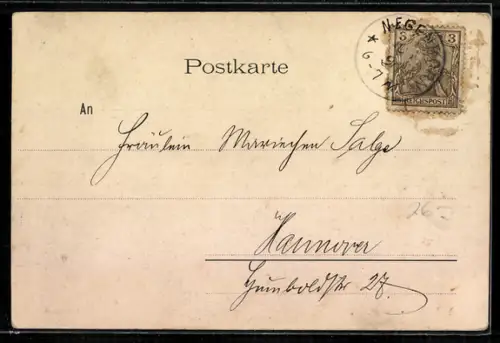 NEGEN
6-7 N
3 3
REICHSPOST
Postkarte
An
Fräulein Mariechen Salge
Hannover
Humboldtstr 27.
26